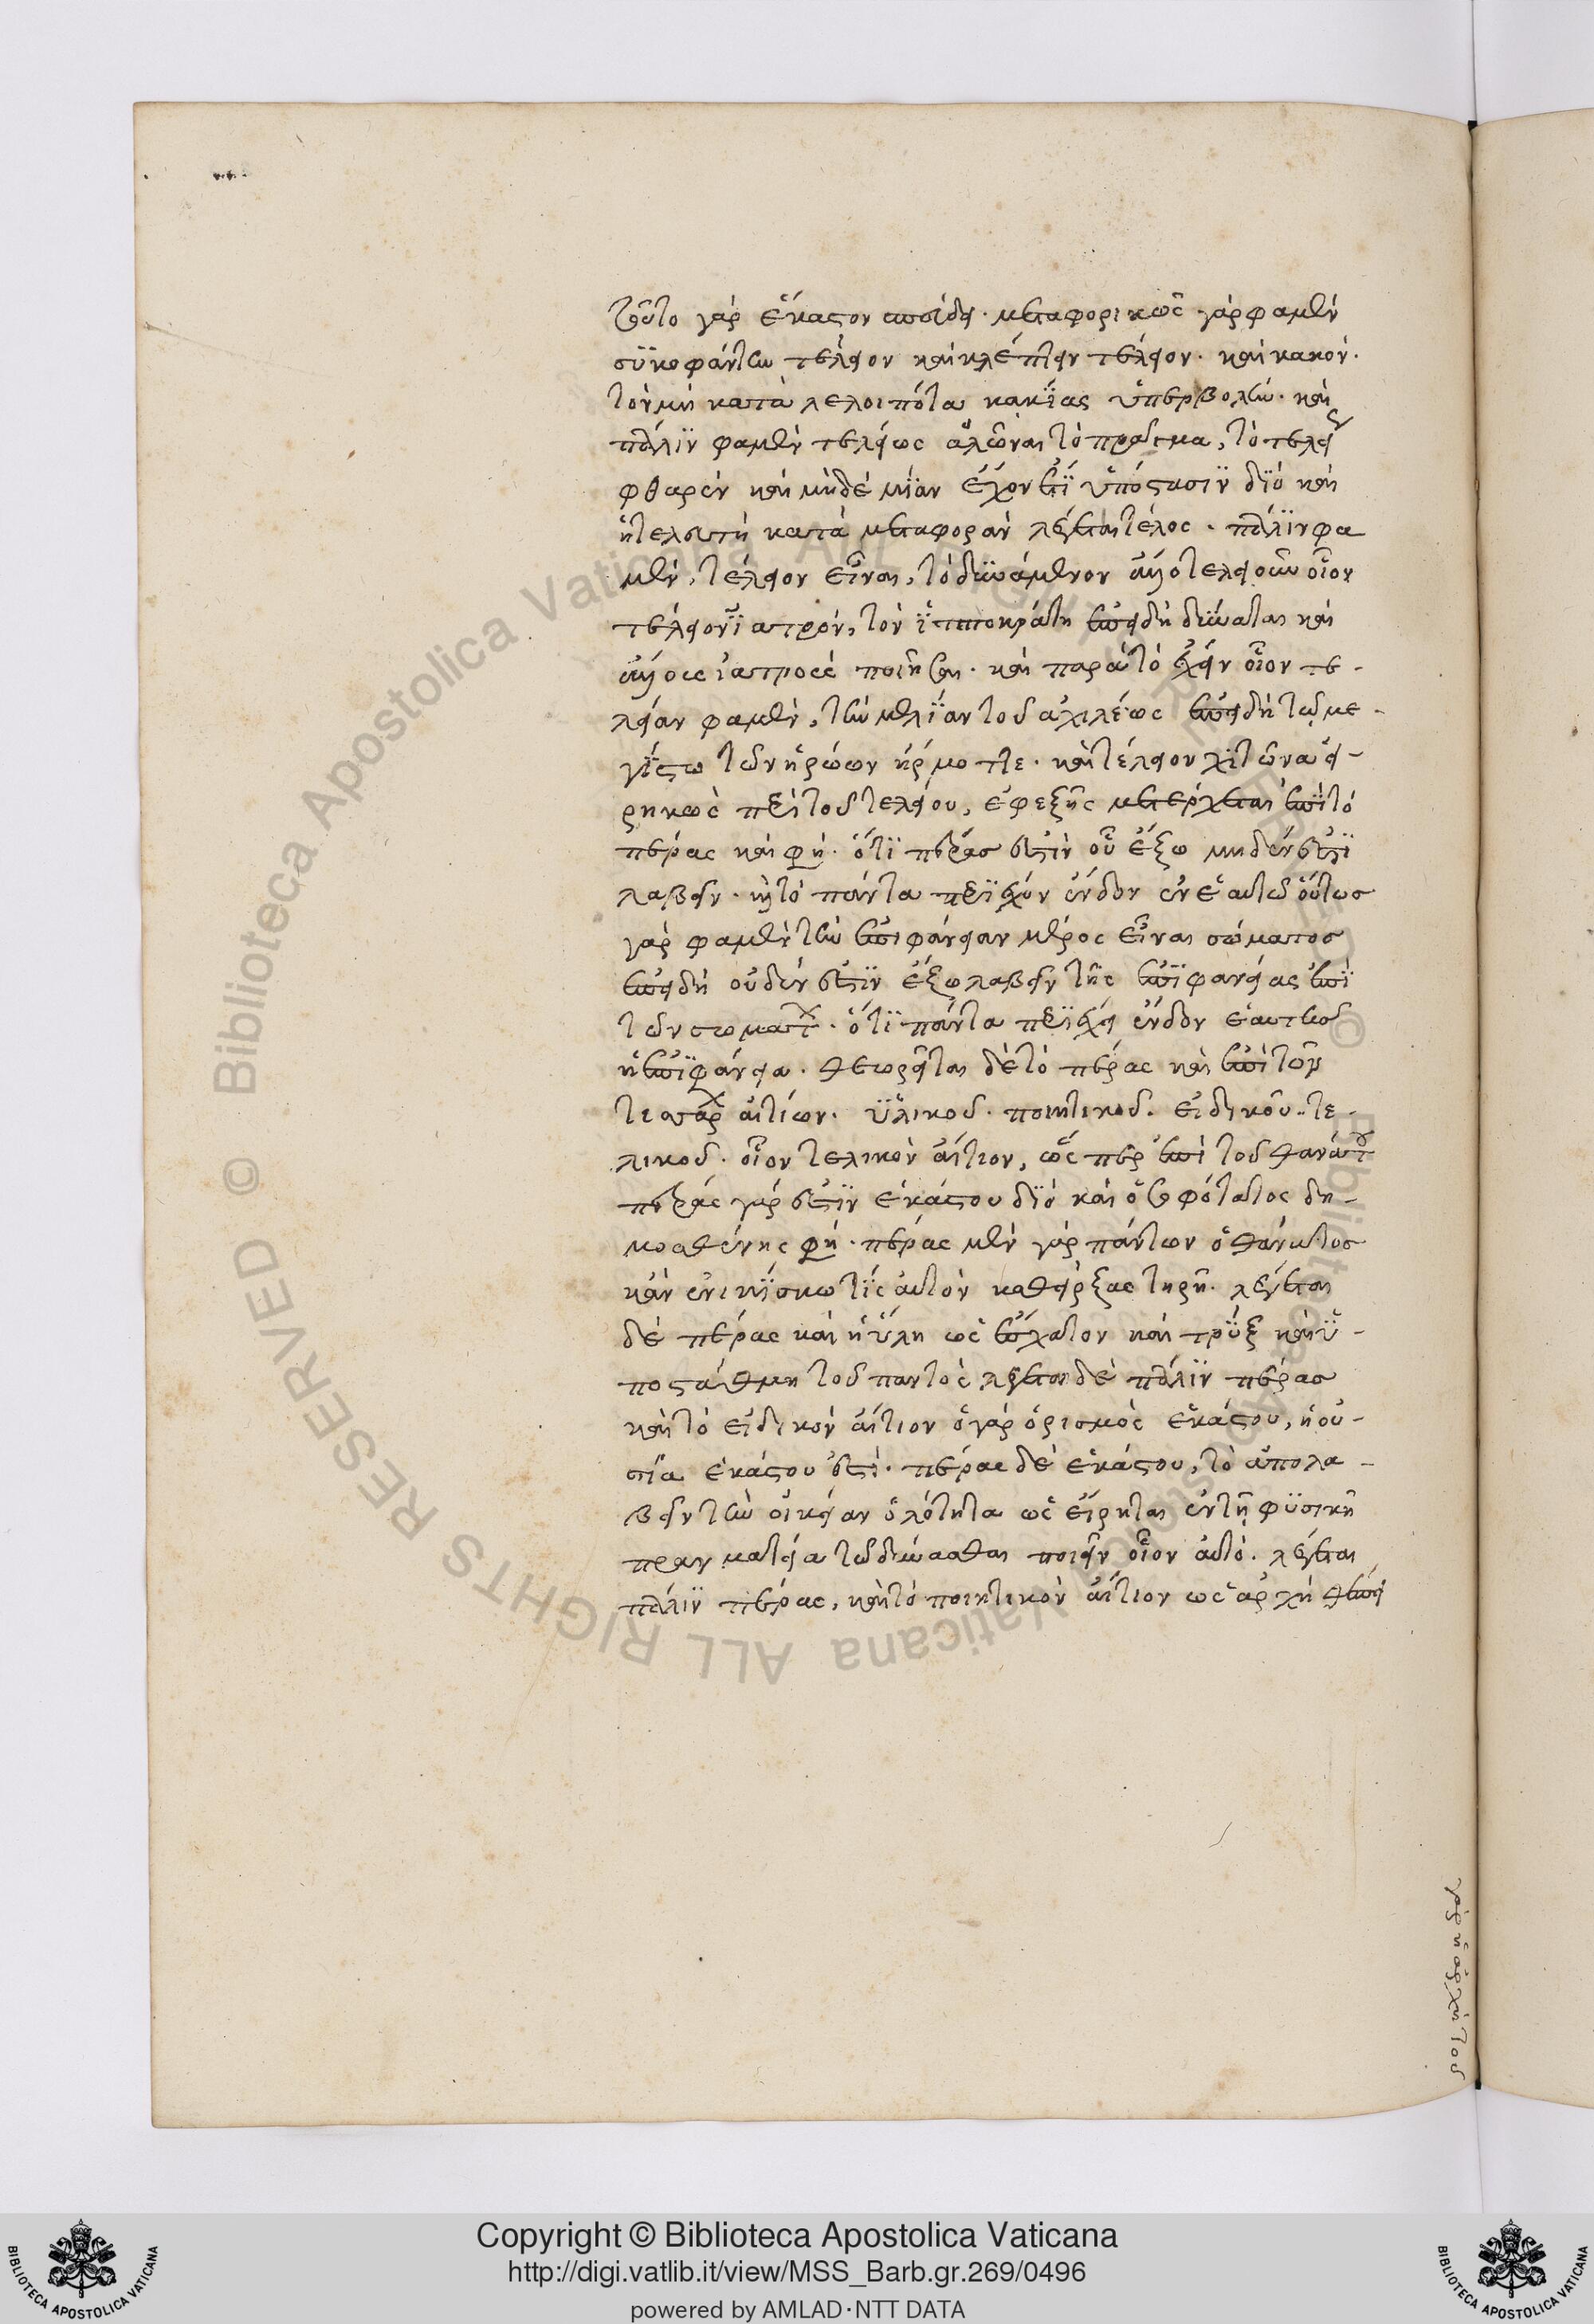 τοῦτο γὰρ ἕκαστον σπεύδει· μεταφορικῶς γὰρ φαμὲν
συκοφάντην τέλειον καὶ κλέπτην τέλειον· καὶ κακὸν.
τὸν μὴ καταλελοιπότα κακίας ὑπερβολὴν· καὶ
πάλιν φαμὲν τελείως ἁλῶναι τὸ πρᾶγμα, τὸ τελείως
φθαρὲν καὶ μηδὲ μίαν ἔχον ἔτι ὑπόστασιν διὸ καὶ
ἡ τελευτὴ κατὰ μεταφορὰν λέγεται τέλος· πάλιν φα
μὲν, τέλειον εἶναι, τὸ δυνάμενον ἄλλο τελειοῦν οἷον
τέλειον ἰατρὸν, τὸν ἱπποκράτη ἐπειδὴ δύναται καὶ
ἄλλους ἰατροὺς ποιῆσαι· καὶ παρὰ τὸ ἔχειν οἷον τε-
λείαν φαμὲν, τὴν μελίαν τοῦ ἀχιλέως ἐπειδὴ τῷ με-
γίστω τῶν ἡρώων ἥρμοττε· καὶ τέλειον χιτῶνα εἰ-
ρηκὼς περὶ τοῦ τελείου, ἐφεξῆς μετέρχεται ἐπὶ τὸ
πέρας καὶ φησὶ· ὅτι πέρας ἐστὶν οὗ ἔξω μηδέν ἐστι
λαβεῖν· καὶ τὸ πάντα περιέχον ἔνδον ἐν ἑαυτῶ οὕτως
γὰρ φαμὲν τὴν ἐπιφάνειαν μέρος εἶναι σώματος
ἐπειδὴ οὐδέν ἐστιν ἔξω λαβεῖν τῆς ἐπιφανείας ἐπὶ
τῶν σωμάτων· ὅτι πάντα περιέχει ἔνδον ἑαυτῆς
ἡ ἐπιφάνεια· θεωρεῖται δὲ τὸ πέρας καὶ ἐπὶ τῶν
τεσσάρων αἰτίων· ὑλικοῦ· ποιητικοῦ· εἰδικοῦ· τε-
λικοῦ· οἷον τελικὸν αἴτιον, ὥσπερ ἐπὶ τοῦ θανάτου
πέρας γάρ ἐστιν ἑκάστου διὸ καὶ ὁ σοφώτατος δη-
μοσθένης φησὶ· πέρας μὲν γὰρ πάντων ὁ θάνατος
κἂν ἐν οικίσκω τὶς αὐτὸν καθείρξας τηρῆ· λέγεται
δὲ πέρας καὶ ἡ ὕλη ὡς ἔσχατον καὶ τρὺξ καὶ ὑ-
ποστάθμη τοῦ παντὸς λέγεται δὲ πάλιν πέρας
καὶ τὸ εἰδικὸν αἴτιον ὁ γὰρ ὁρισμὸς ἑκάστου, ἡ οὐ-
σία ἑκάστου ἐστὶ· πέρας δὲ ἑκάστου, τὸ ἀπολα-
βεῖν τὴν οἰκείαν ὁλότητα ὡς εἴρηται ἐν τῆ φυσικῆ
πραγματεία τῶ δύνασθαι ποιεῖν οἷον αὐτό· λέγεται
πάλιν πέρας, καὶ τὸ ποιητικὸν αἴτιον ὡς ἀρχὴ ἐπεὶ
γὰρ ἡ ἀρχὴ τοῦ
© Biblioteca Apostolica Vaticana ALL RIGHTS RESERVED © Biblioteca Apostolica Vaticana ALL RIGHTS RESERVED
BIBLIOTECA APOSTOLICA VATICANA
Copyright © Biblioteca Apostolica Vaticana
http://digi.vatlib.it/view/MSS_Barb.gr.269/0496
powered by AMLAD·NTT DATA
BIBLIOTECA APOSTOLICA VATICANA